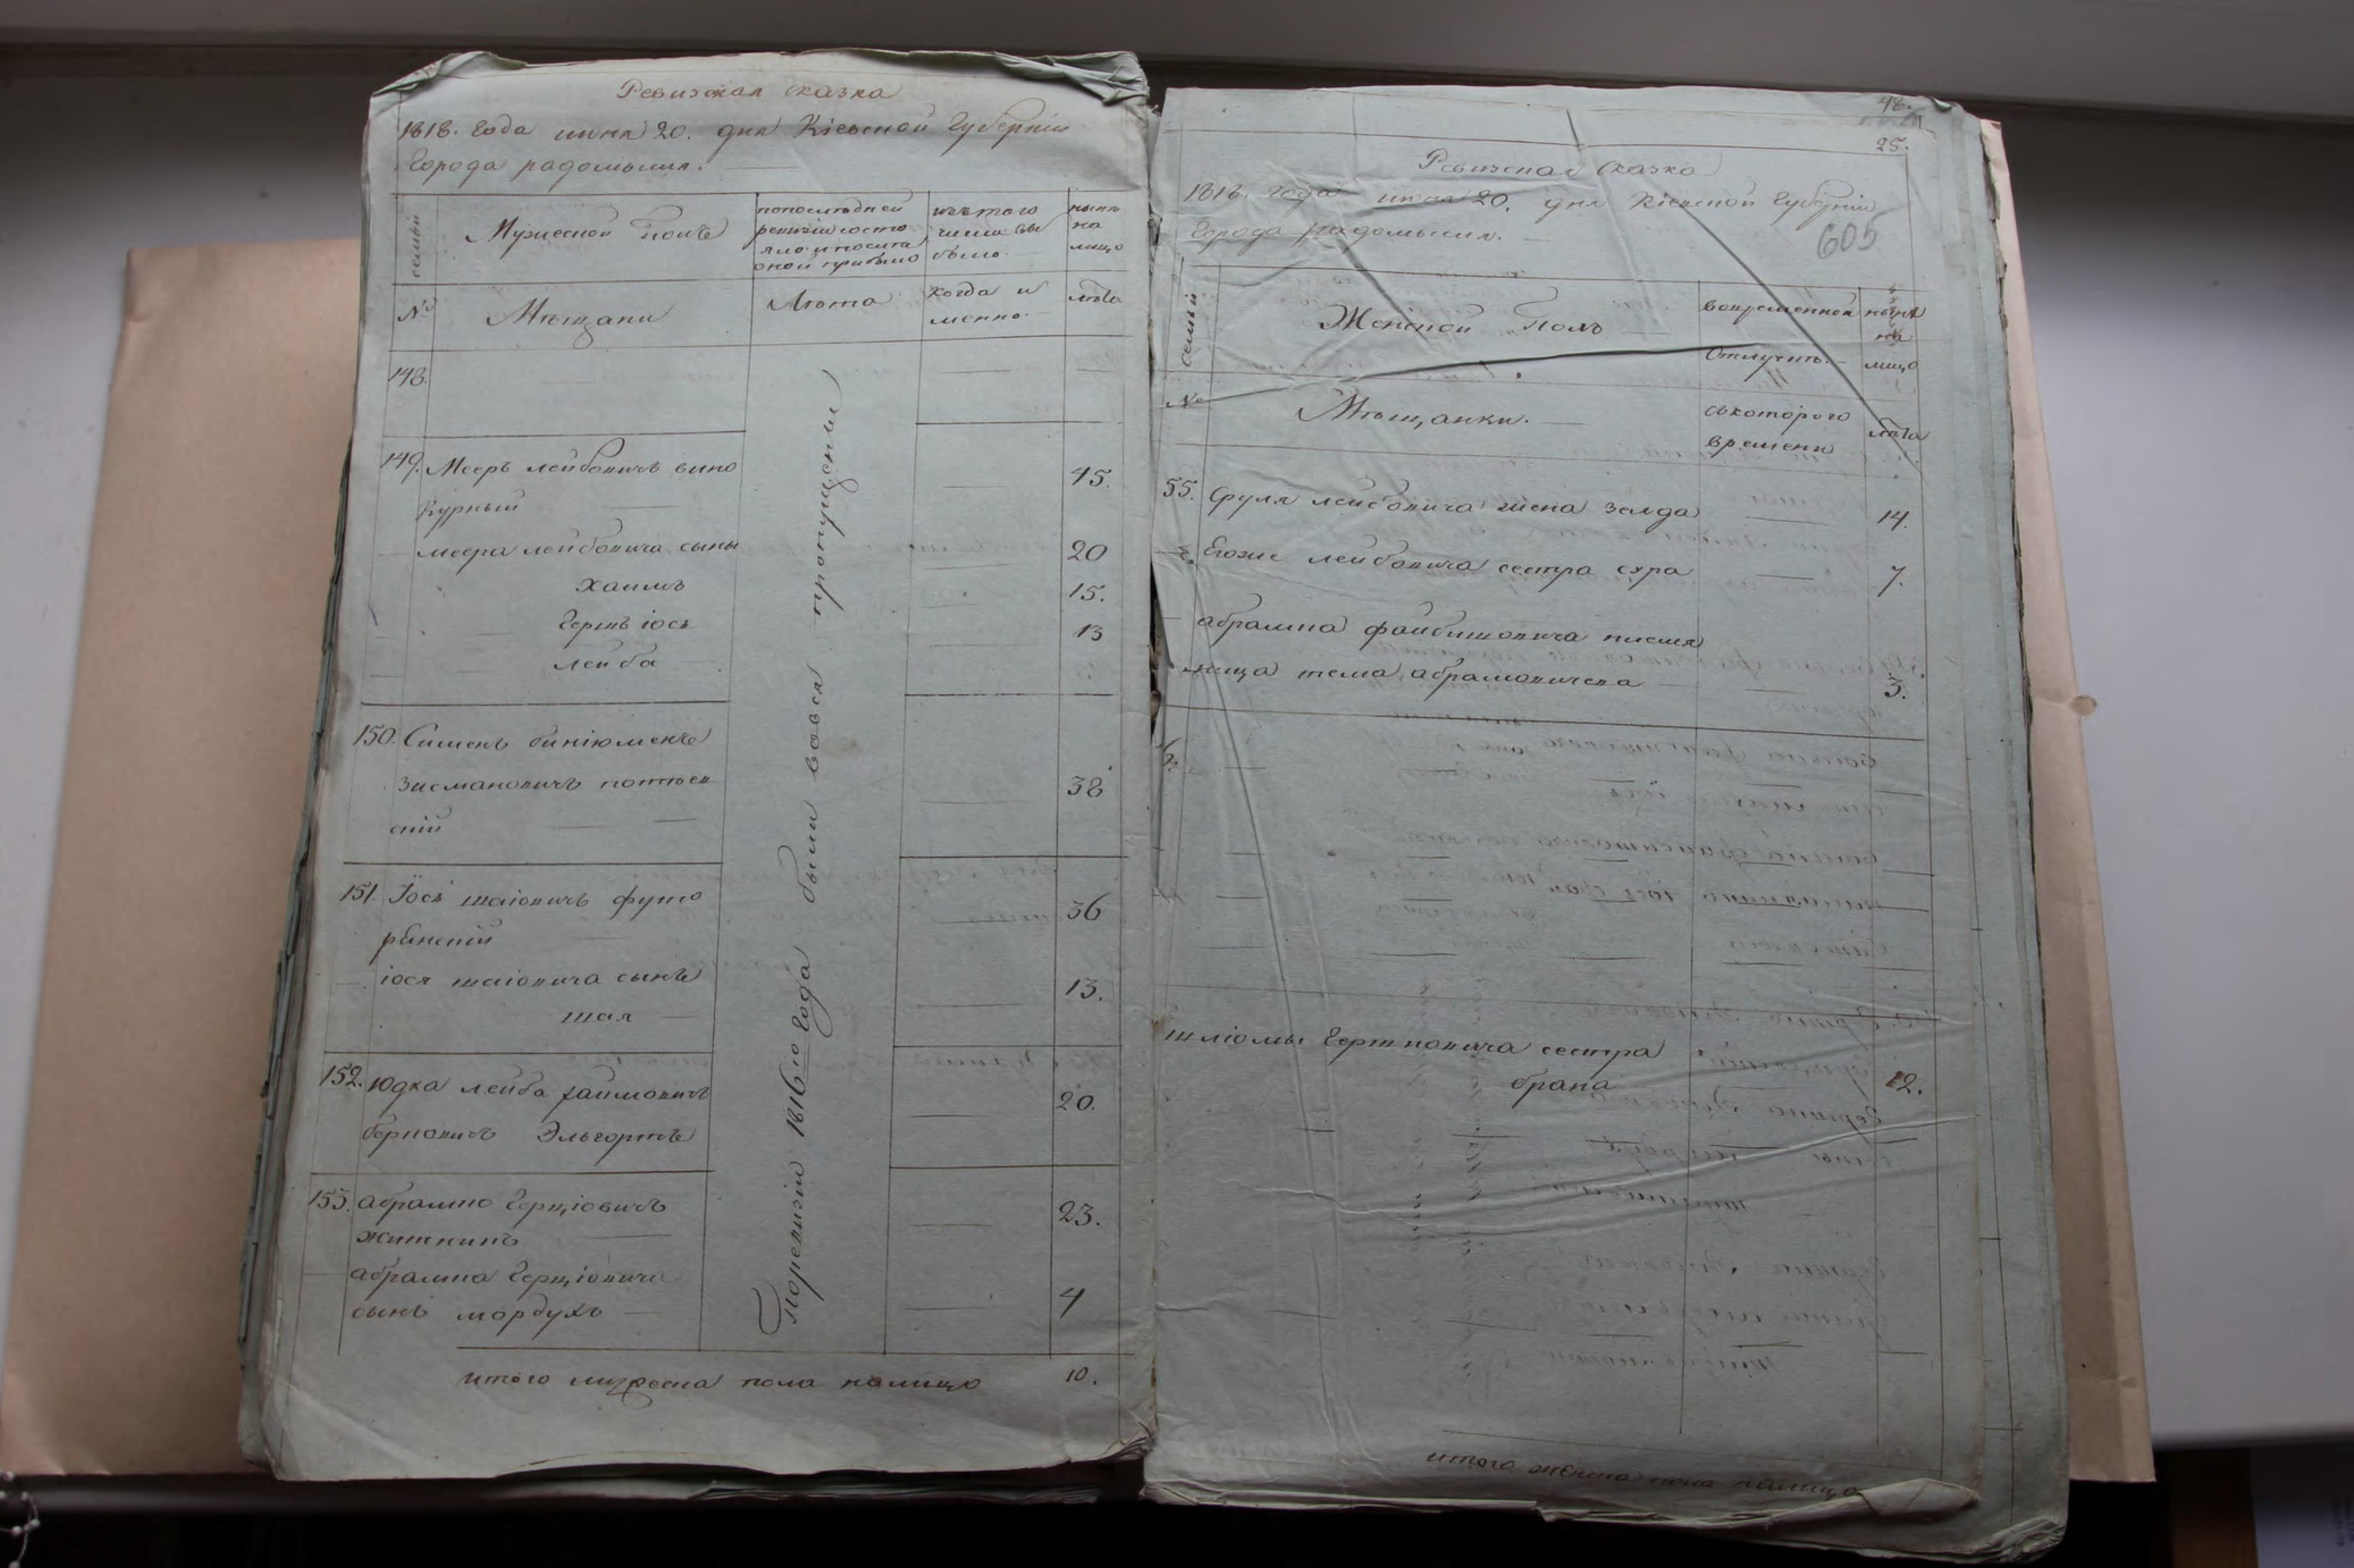 Ревизская сказка
1818. года июня 20. дня Кіевской Губерніи
Города радомысля.
семьи
Мужеской полъ
попоследней
ревизіи состо
яло и посяга
оной прибыло
изътого
числа вы
было
нынѣ
на
лицо
№
Мѣщани
Лѣта
когда и
менно
лѣта
148.
149. Мееръ лейбовичъ вино
курный
45.
меера лейбовича сыны
20
хаимъ
15.
Гершъ іось
13
лейба
150. Сименъ биніюменъ
Зисмановичъ потіев
скій
38
151. Іось шаіовичъ футо
рянскій
36
іося шаіовича сынъ
13.
шая
152. Юдка лейба хаимовичъ
берковичъ Эльгортъ
20.
153. абрамко Герщіовичъ
житникъ
23.
абрамка Герщіовича
сынъ мордухъ
4
Поревизіи 1816го Года были вовся пропущены
итого мужеска пола налицо 10.
48.
25.
Ревизская сказка
1818. года июня 20. дня Кіевской Губерніи
Города радомысля.
605
семьи
Женской полъ
вовременной
Отлучкѣ
нынѣ
на
лицо
№
Мѣщанки.
съкоторого
времени
лѣта
55. Сруля лейбовича жена Зелда 14.
Егоже лейбовича сестра сура 7.
абрамка файбишовича племя
ница тема абрамовичева 3.
шліомы Гершковича сестра
брана 12.
итого женска пола налицо